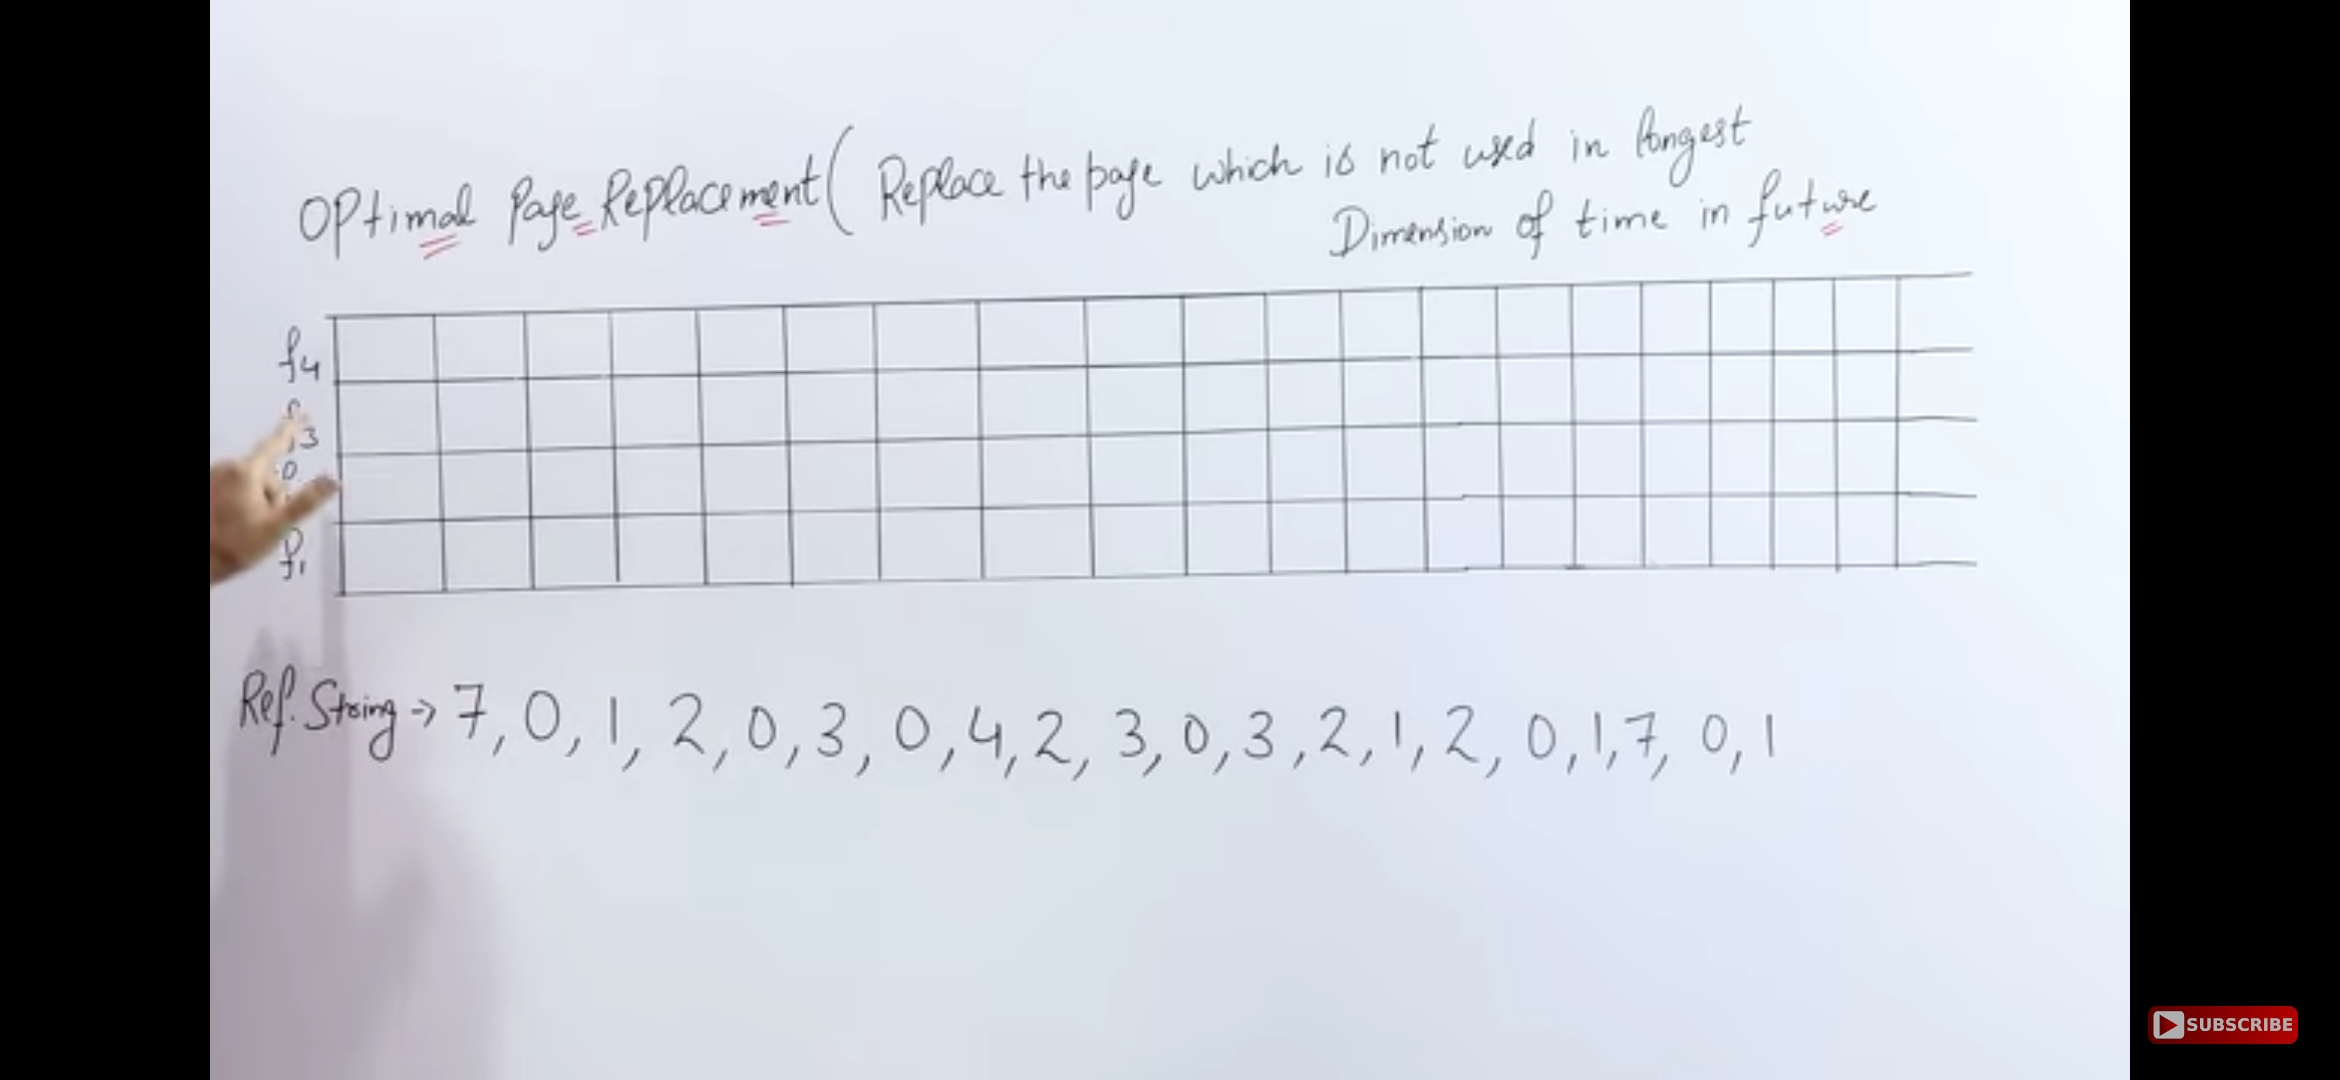 Optimal Page Replacement ( Replace the page which is not used in longest
Dimension of time in future
f4
3
f1
Ref. String → 7, 0, 1, 2, 0, 3, 0, 4, 2, 3, 0, 3, 2, 1, 2, 0, 1, 7, 0, 1
SUBSCRIBE